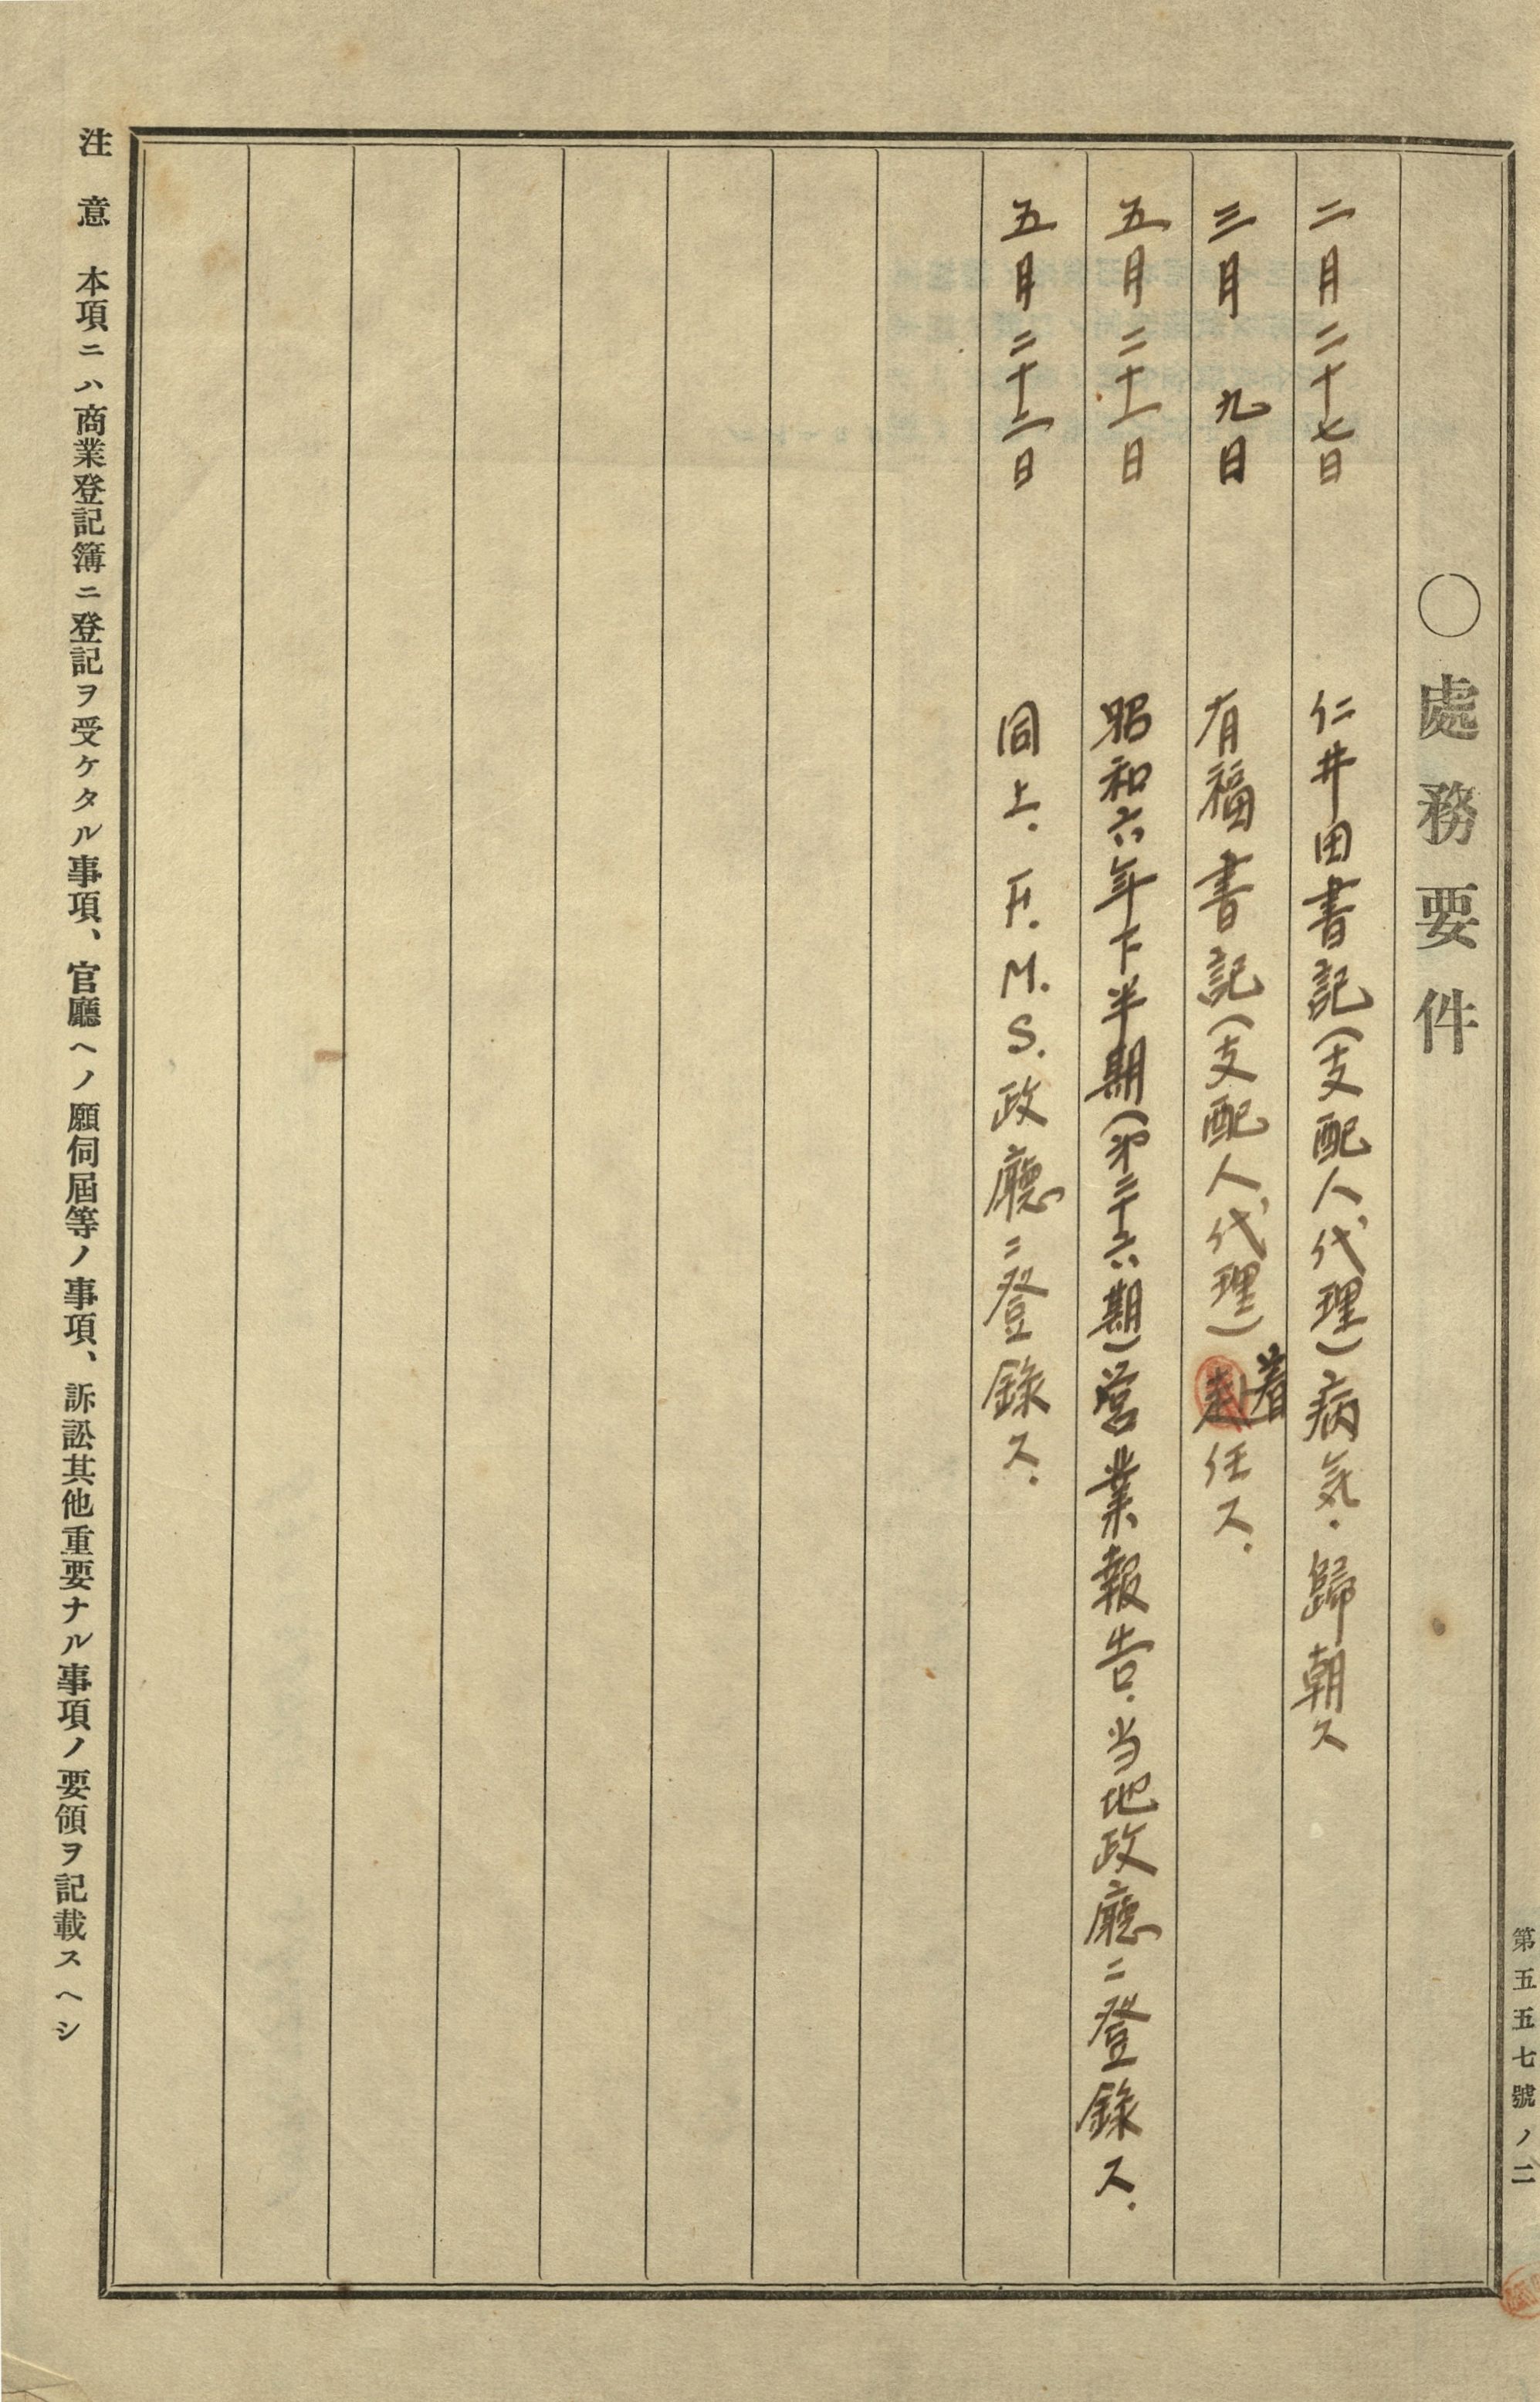 第五五七號ノ二
〇處務要件
二月二十七日 仁井田書記(支配人代理)病気・歸朝ス
三月 九日 有福書記(支配人代理)着任ス.
五月二十一日 昭和六年下半期(第三十六期)営業報告.当地政廳ニ登録ス.
五月二十二日 同上.F.M.S.政廳ニ登録ス.
注意 本項ニハ商業登記簿ニ登記ヲ受ケタル事項、官廳ヘノ願伺屆等ノ事項、訴訟其他重要ナル事項ノ要領ヲ記載スヘシ